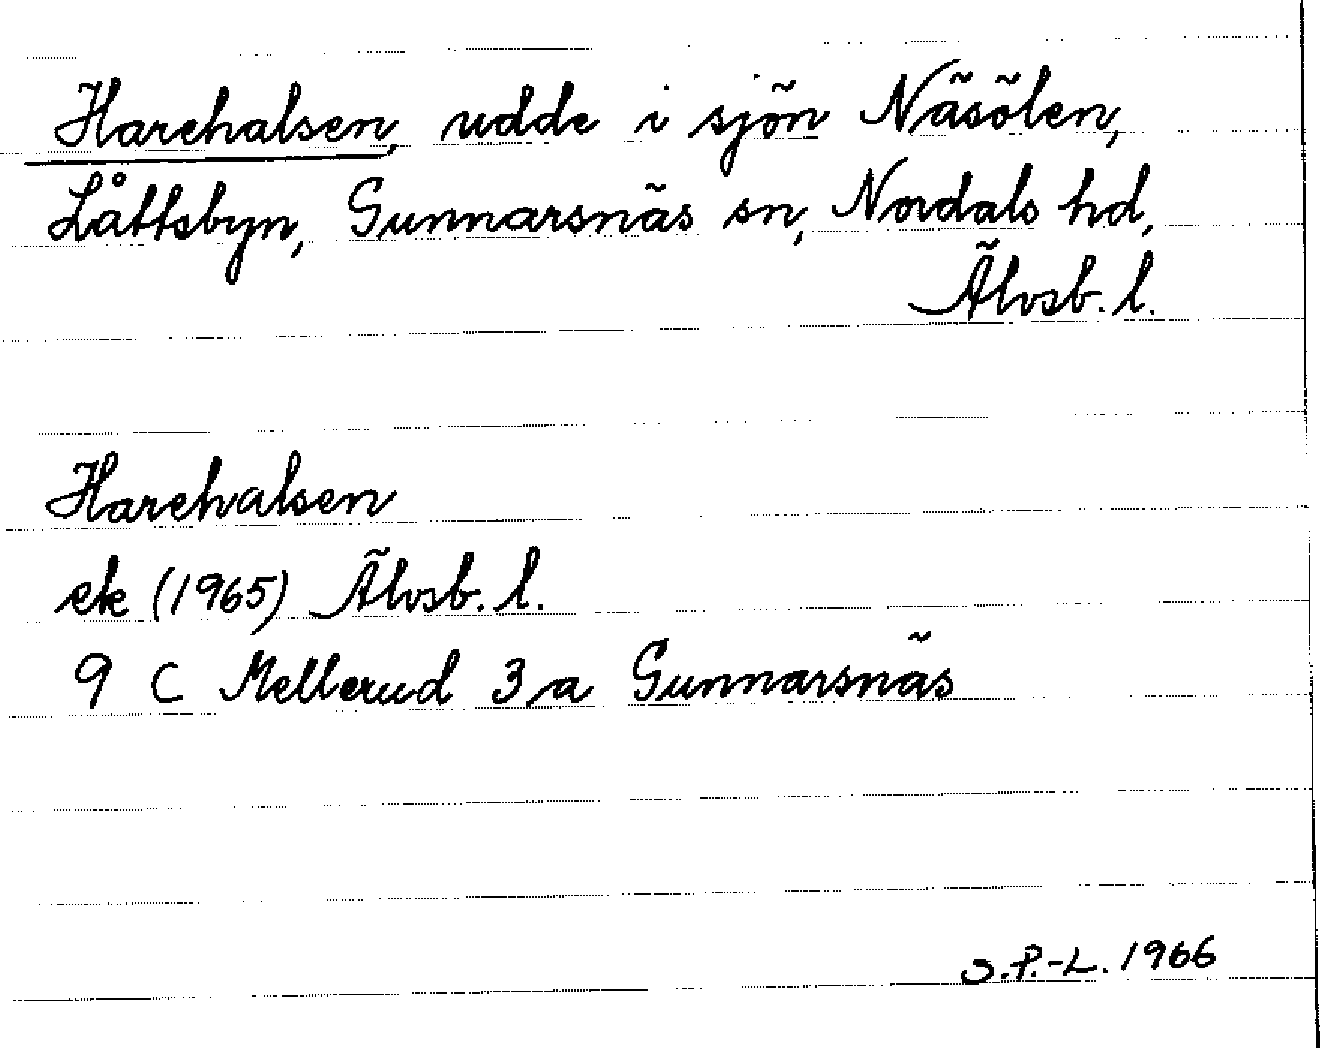 Harehalsen, udde i sjön Näsölen,
Låttsbyn, Gunnarsnäs sn, Nordals hd,
Älvsb. l.
Harehalsen
ek (1965) Älvsb. l.
9 C Mellerud 3 a Gunnarsnäs
S.P.-L. 1966